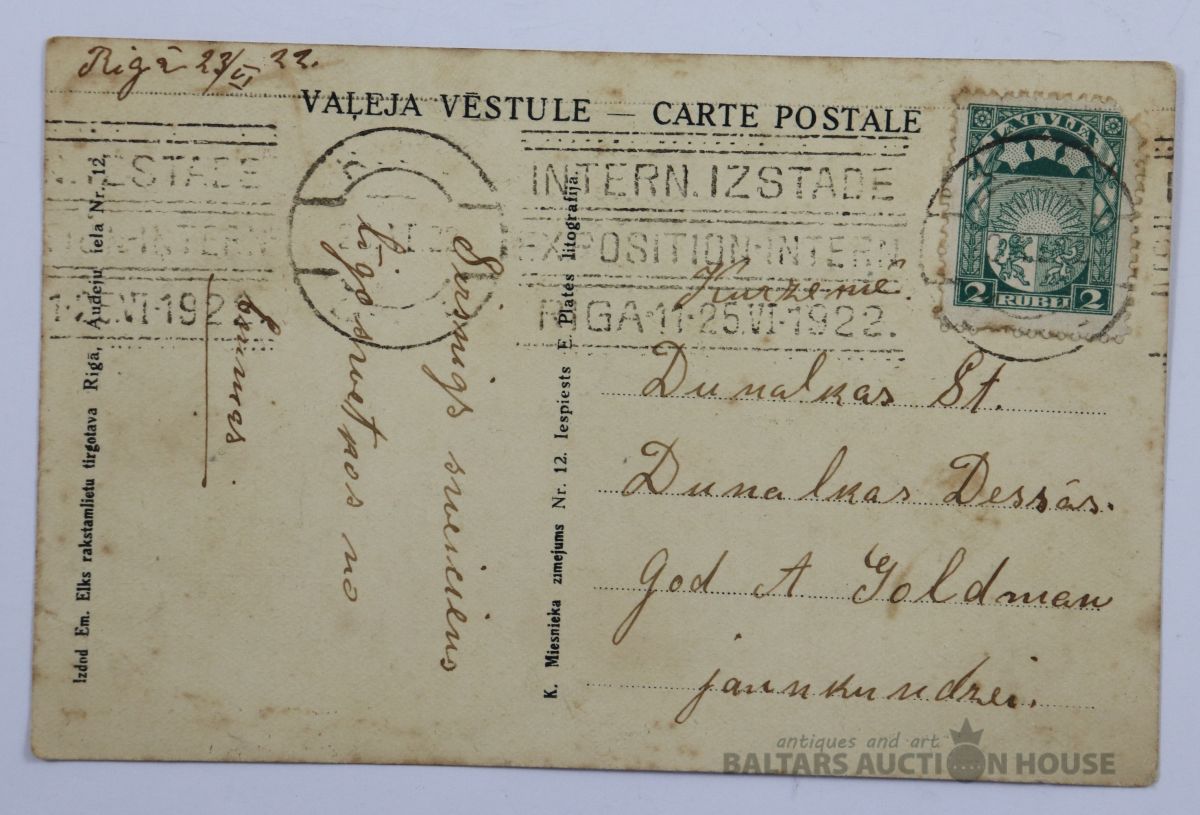 Rigā 23/VI 22.
VAĻEJA VĒSTULE — CARTE POSTALE
LATVIJA
2 RUBLI 2
INTERN. IZSTADE
EXPOSITION·INTERN
RIGA·11-25.VI·1922.
N. IZSTADE
INTERN
VI·1922
Izdod Em. Elks rakstamlietu tirgotava Rigā, Audēju ielā Nr. 12,
Sirsnigs sveiciens
līgo svetkos no
Emmas
K. Miesnieka zīmejums Nr. 12. Iespiests E. Plates litografijā
Kurzemē.
Dunalkas St.
Dunalkas Dessās.
God A Goldman
jaunkundzei.
antiques and art
BALTARS AUCTION HOUSE